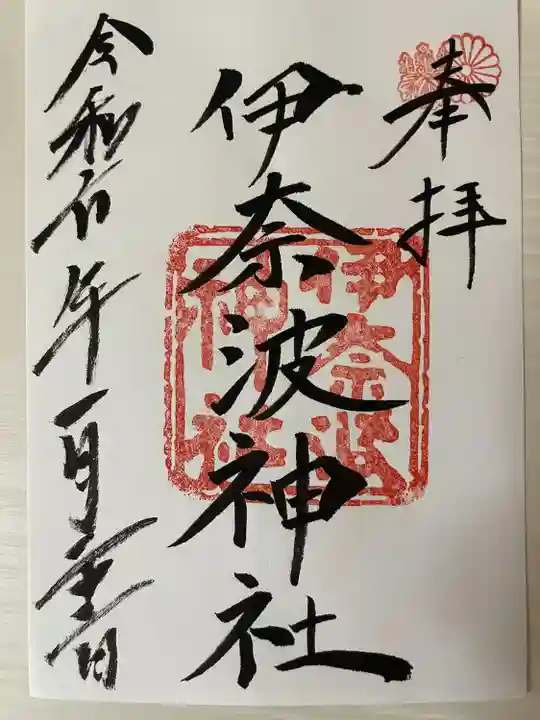 奉拝
伊奈波神社
伊奈波
神社
令和年一月日